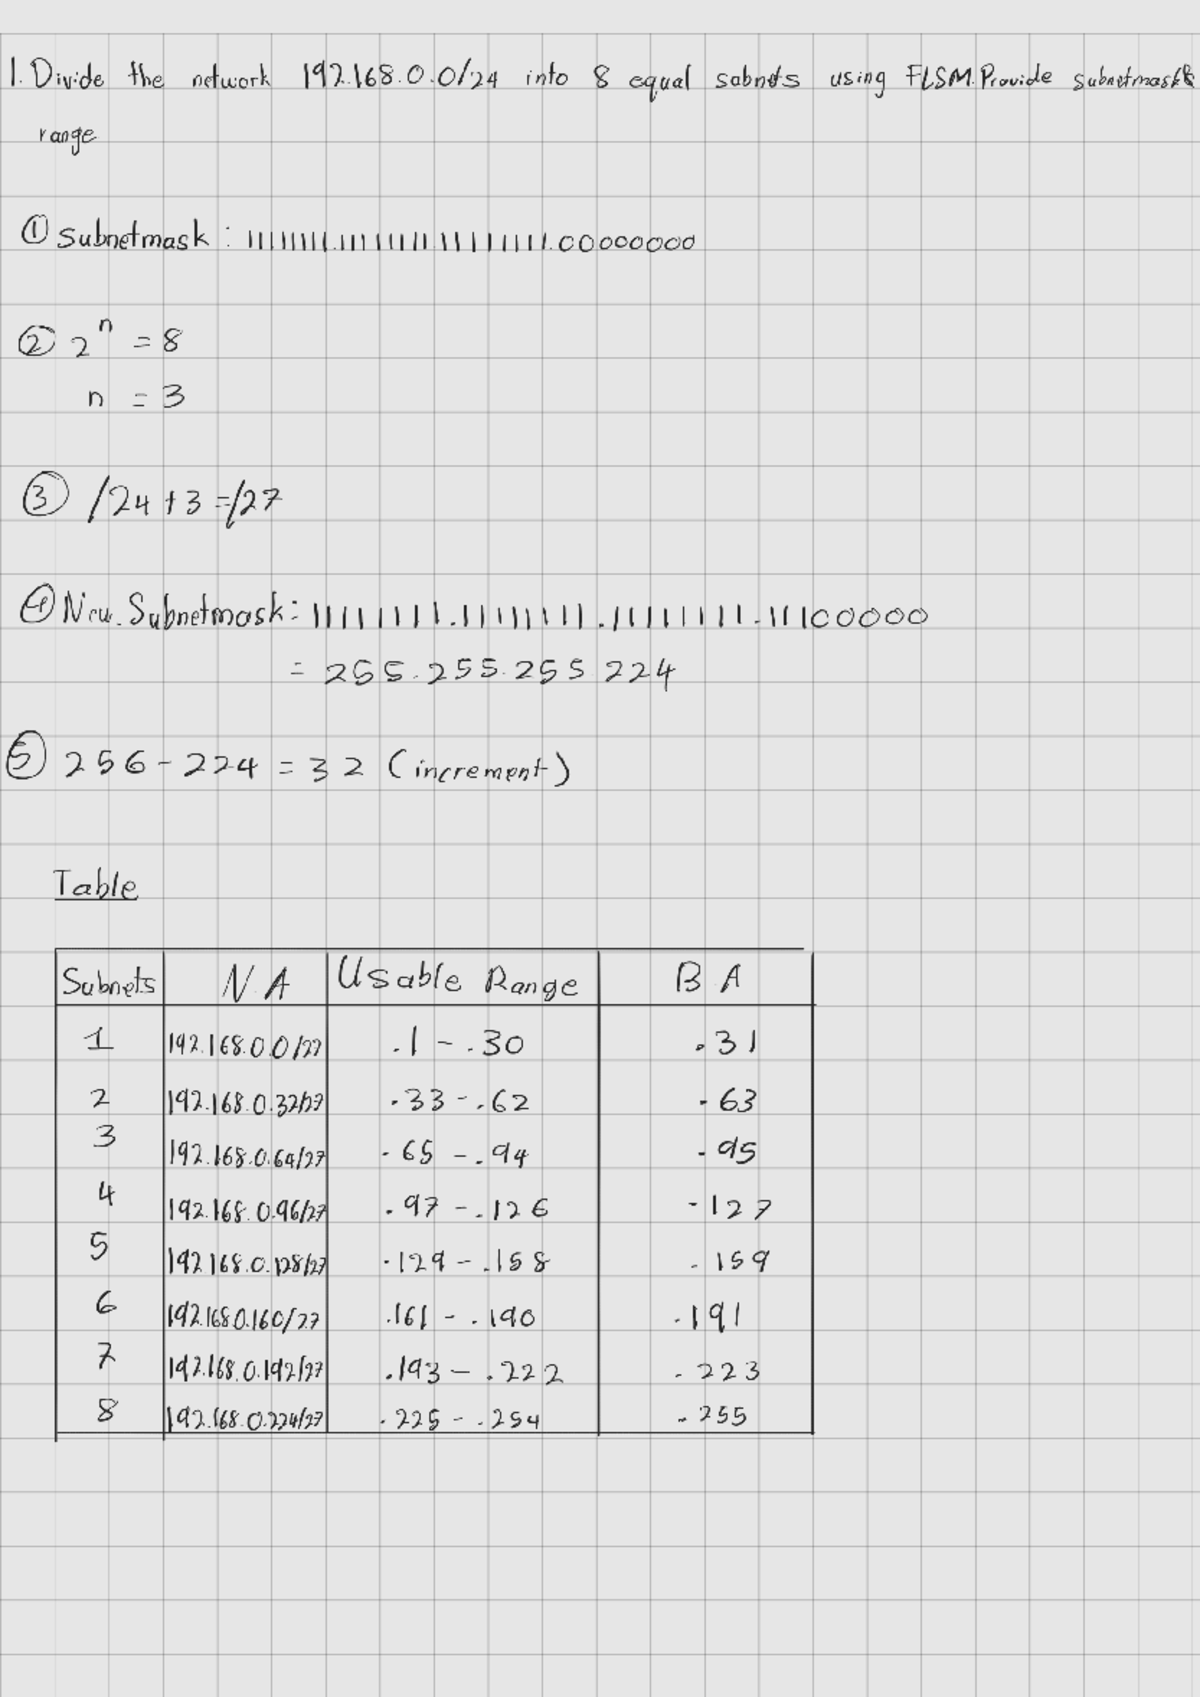 1. Divide the network 192.168.0.0/24 into 8 equal sabnets using FLSM. Provide subnetmask &
range
① subnetmask : 11111111.11111111.11111111.00000000
② 2^n = 8
n = 3
③ /24 + 3 = /27
④ New. Subnetmask: 11111111.11111111.11111111.11100000
= 255.255.255.224
⑤ 256 - 224 = 32 (increment)
Table
Subnets N.A Usable Range B A
1 192.168.0.0/27 .1 - .30 .31
2 192.168.0.32/27 .33 - .62 .63
3 192.168.0.64/27 .65 - .94 .95
4 192.168.0.96/27 .97 - .126 .127
5 192.168.0.128/27 .129 - .158 .159
6 192.168.0.160/27 .161 - .190 .191
7 192.168.0.192/27 .193 - .222 .223
8 192.168.0.224/27 .225 - .254 .255